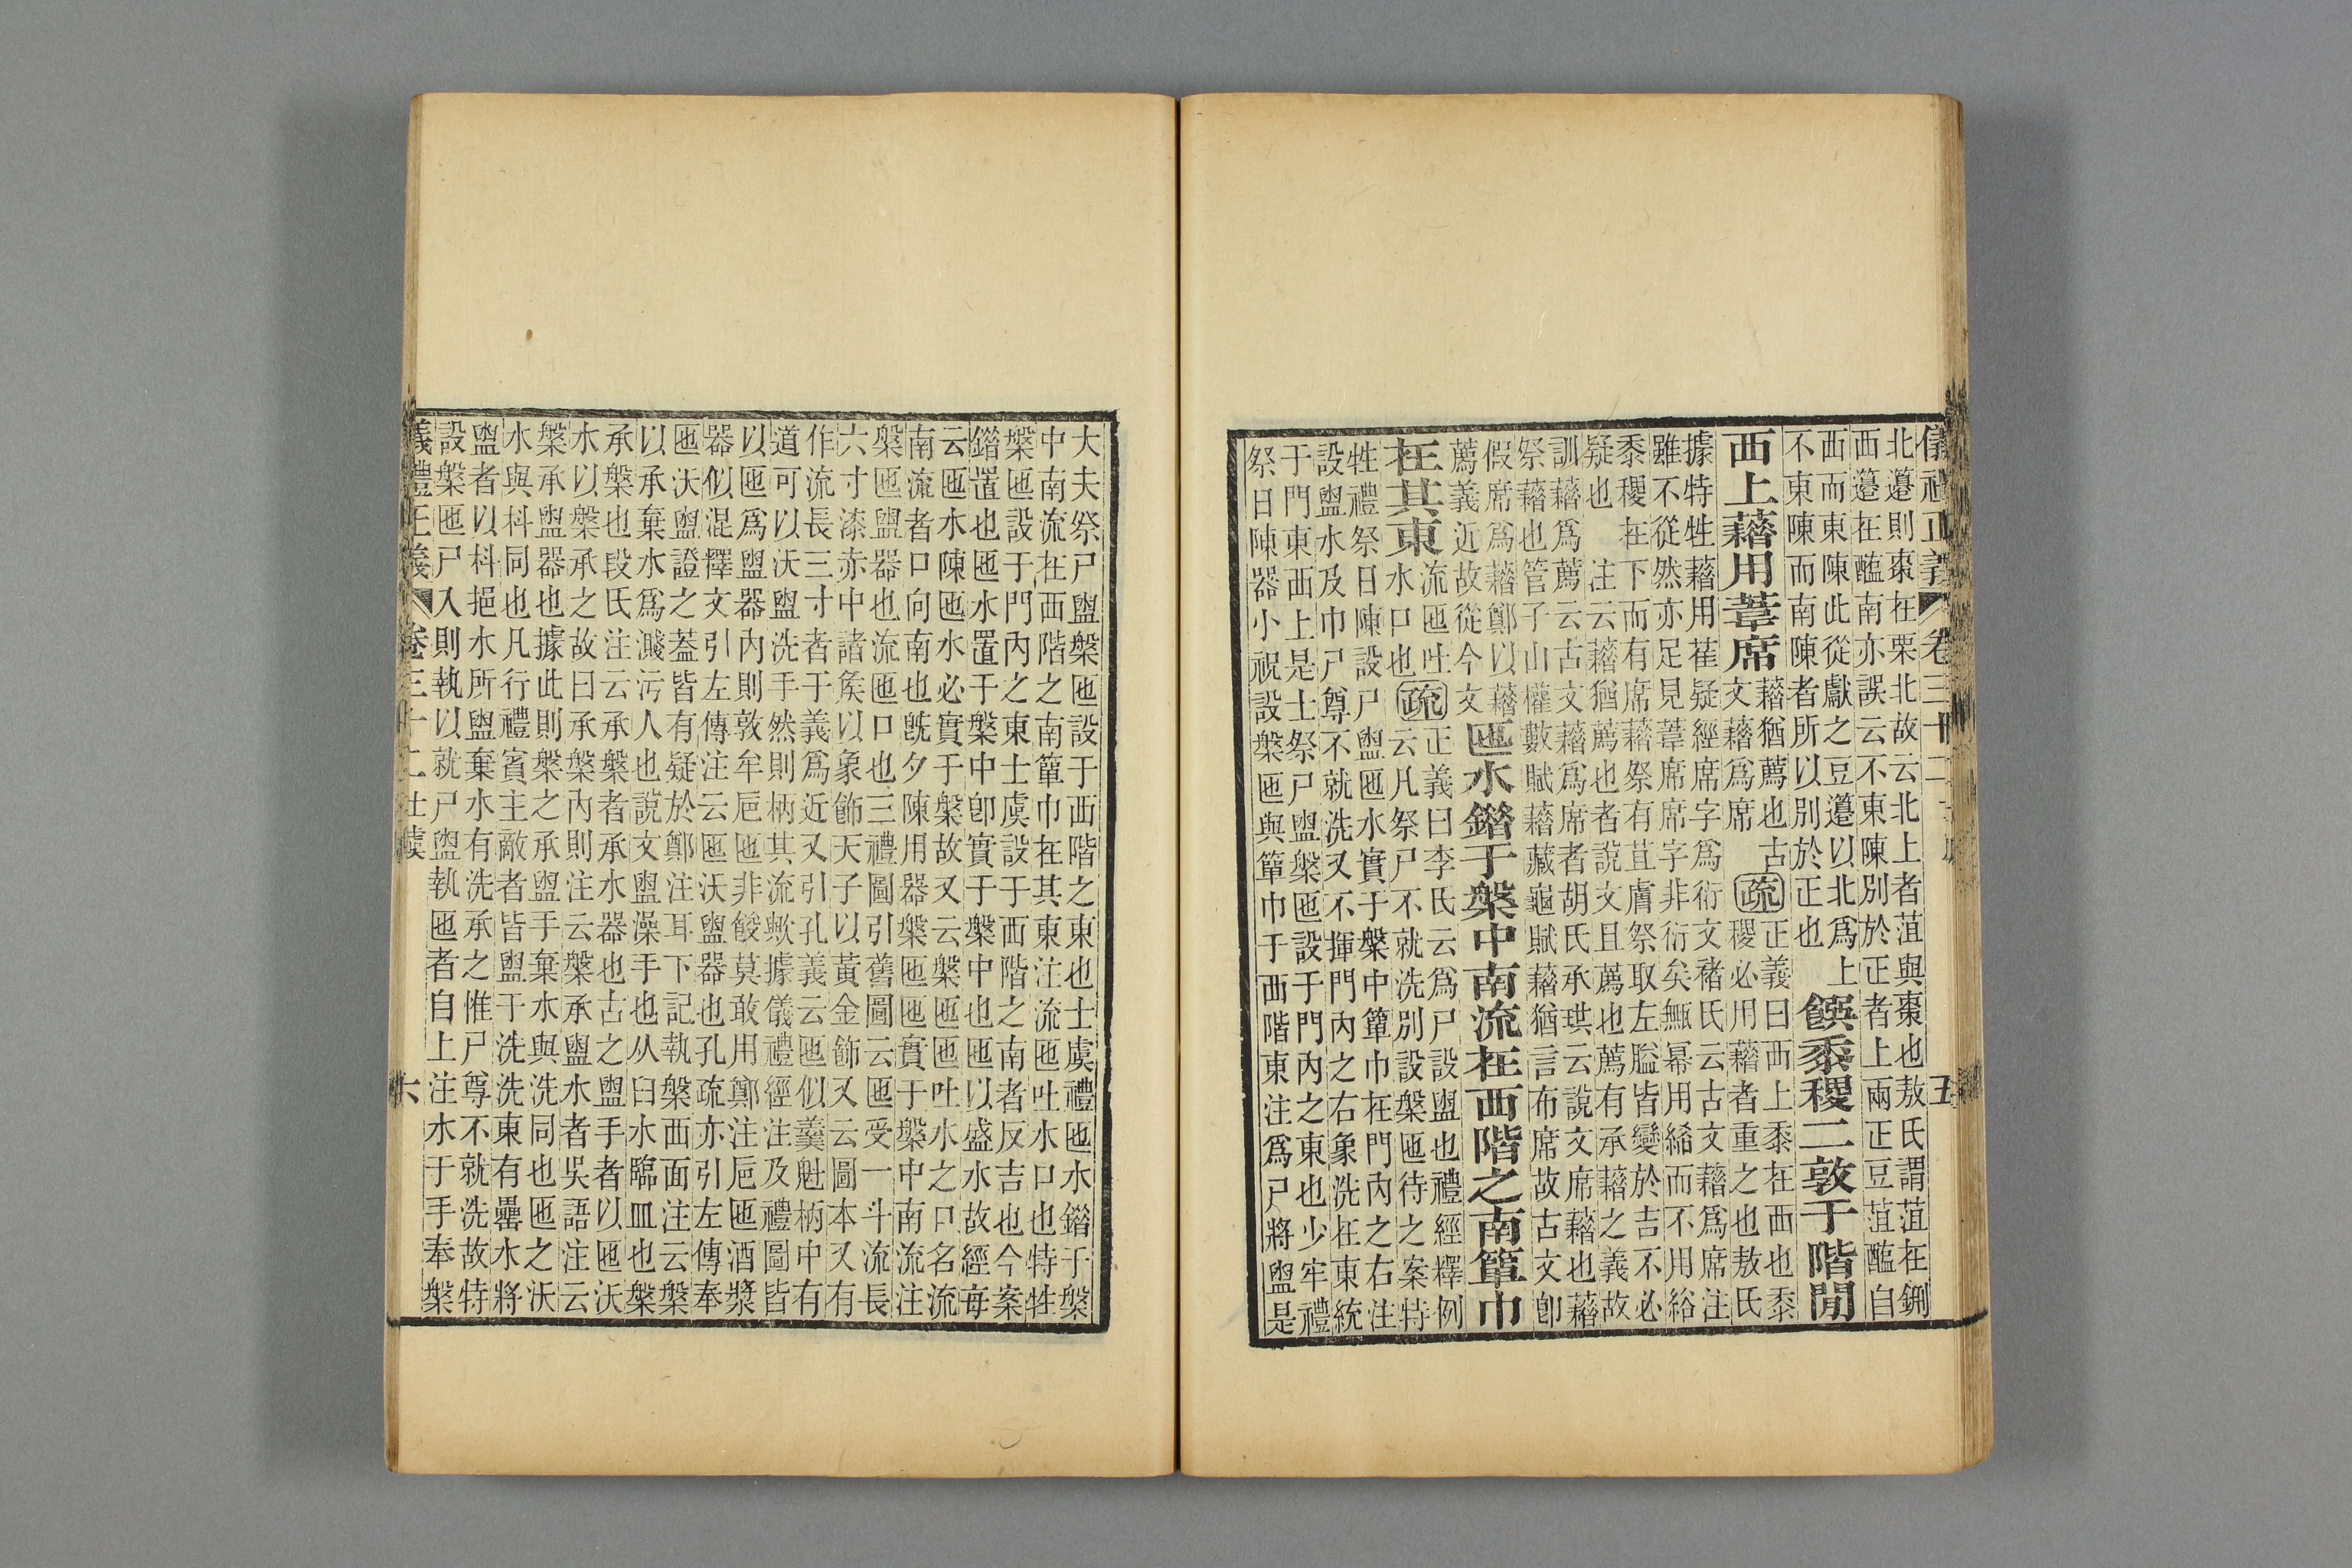 儀禮正義 卷三十二 五
北籩則棗在栗北故云北上者菹與棗也敖氏謂菹在鉶
西籩在醢南亦誤云不東陳別於正者上兩正豆菹醢自
西而東陳此從獻之豆籩以北爲上
不東陳而南陳者所以別於正也
饌黍稷二敦于階閒
西上藉用葦席
藉猶薦也古
文藉爲席
疏
正義曰西上黍在西也黍
稷必用藉者重之也敖氏
據特牲藉用萑疑經席字爲衍文褚氏云古文藉爲席注
雖不從然亦足見葦席席字非衍矣甒冪用絺而不用綌
黍稷在下而有席藉祭有苴膚祭取左膉皆變於吉不必
疑也 注云藉猶薦也者說文且薦也薦有承藉之義故
訓藉爲薦云古文藉爲席者胡氏承珙云說文席藉也藉
祭藉也管子山權數賦藉藏龜賦藉猶言布席故古文卽
假席爲藉鄭以藉
薦義近故從今文
匜水錯于槃中南流在西階之南簞巾
在其東
流匜吐
水口也
疏
正義曰李氏云爲尸設盥也禮經釋例
云凡祭尸不就洗別設槃匜待之案特
牲禮祭日陳設尸盥匜水實于槃中簞巾在門內之右注
設盥水及巾尸尊不就洗又不揮門內之右象洗在東統
于門東西上是士祭尸盥槃匜設于門內之東也少牢禮
祭日陳器小祝設槃匜與簞巾于西階東注爲尸將盥是
大夫祭尸盥槃匜設于西階之東也士虞禮匜水錯于槃
中南流在西階之南簞巾在其東注流匜吐水口也特牲
槃匜設于門內之東士虞設于西階之南者反吉也今案
錯置也匜水置于槃中卽實于槃中也匜以盛水故經每
云匜水陳匜水必實于槃故又云槃匜匜吐水之口名流
南流者口向南也旣夕陳用器槃匜匜實于槃中南流注
槃匜盥器也流匜口也三禮圖引舊圖云匜受一斗流長
六寸漆赤中諸矦以象飾天子以黃金飾又云圖本又有
作流長三寸者于義爲近又引孔義云匜似羹魁柄中有
道可以沃盥洗手然則柄其流歟據儀禮經注及禮圖皆
以匜爲盥器內則敦牟巵匜非餕莫敢用鄭注巵匜酒漿
器似混釋文引左傳注云匜沃盥器也孔疏亦引左傳奉
匜沃盥證之蓋皆有疑於鄭注耳下記執槃西面注云槃
以承棄水爲濺汚人也說文盥澡手也从臼水臨皿也槃
承槃也段氏注云承槃者承水器也古之盥手者以匜沃
水以槃承之故曰承槃內則注云槃承盥水者吳語注云
槃承盥器也據此則槃之承盥手棄水與洗同也匜之沃
水與枓同也凡行禮賓主敵者皆盥于洗洗東有罍水將
盥者以枓挹水所盥棄水有洗承之惟尸尊不就洗故特
設槃匜尸入則執以就尸盥執匜者自上注水于手奉槃
義禮正義 卷三十二士虞 六